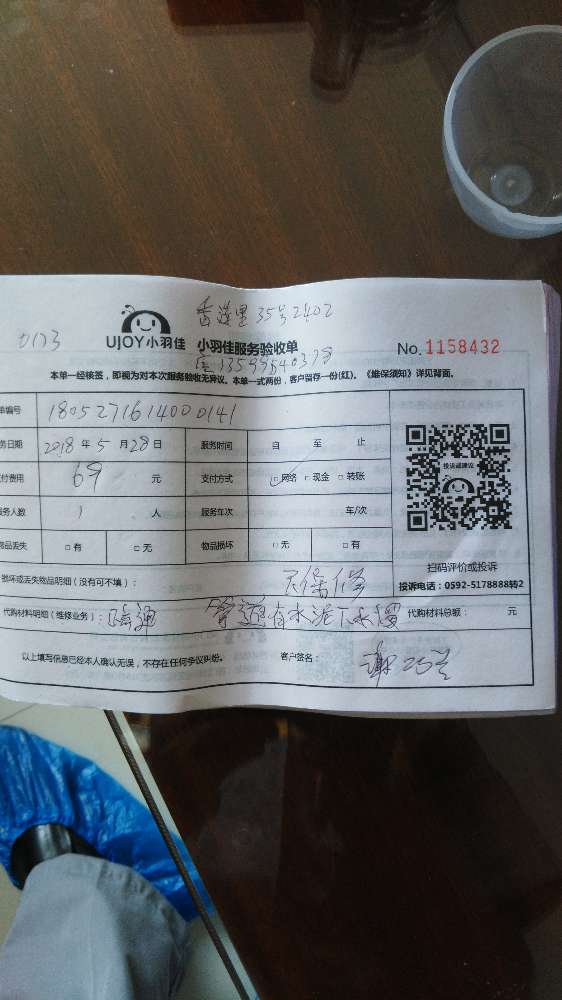 香莲里35号2402
UJOY小羽佳 小羽佳服务验收单 No.1158432
本单一经核签，即视为对本次服务验收无异议。本单一式两份，客户留存一份(红)。《维保须知》详见背面。
单编号 1805271614000141
务日期 2018年5月28日 服务时间 自 至 止
付费用 69 元 支付方式 网络 现金 转账
服务人数 1 人 服务车次 车/次
物品丢失 有 无 物品损坏 无 有
投诉或建议
扫码评价或投诉
投诉电话：0592-5178888转2
损坏或丢失物品明细（没有可不填）： 不保修
代购材料明细（维修业务）： 管道有水泥下水慢 代购材料总额： 元
以上填写信息已经本人确认无误，不存在任何争议纠纷。 客户签名：